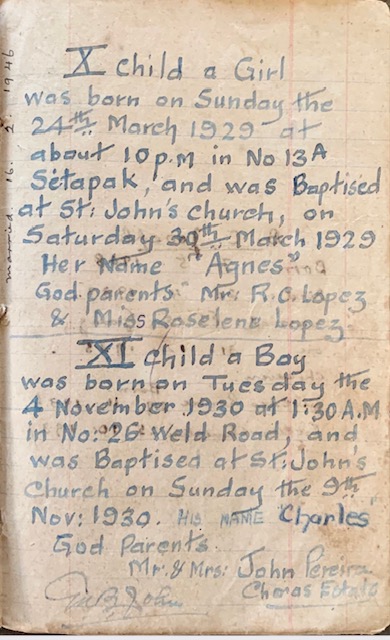 X child a Girl
was born on Sunday the
24th March 1929 at
about 10 p.m in No 13A
Setapak, and was Baptised
at St: John's church, on
Saturday 30th March 1929
Her Name "Agnes"
God parents Mr: R.C. Lopez
& Miss Roselene Lopez
XI child a Boy
was born on Tuesday the
4 November 1930 at 1:30 A.M
in No: 26 Weld Road, and
was Baptised at St: John's
Church on Sunday the 9th
Nov: 1930. His NAME "Charles"
God Parents
Mr. & Mrs: John Pereira
Cheras Estate
John
married 16. 2 1946